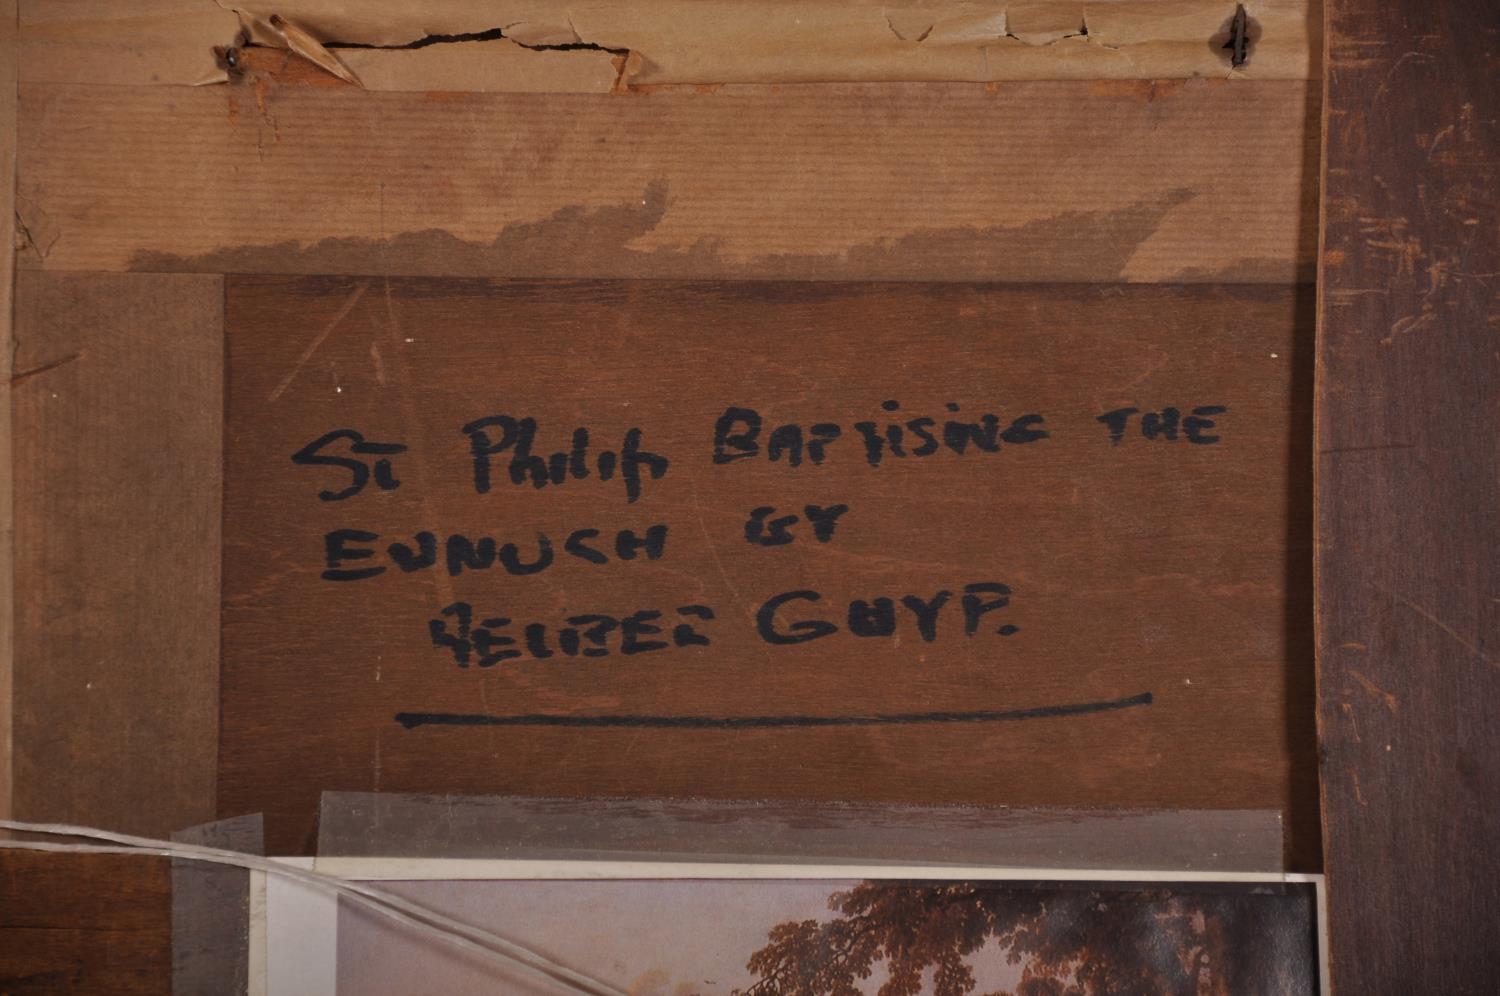 St Philip BAPTISING THE
EUNUCH BY
AELBER GUYP.